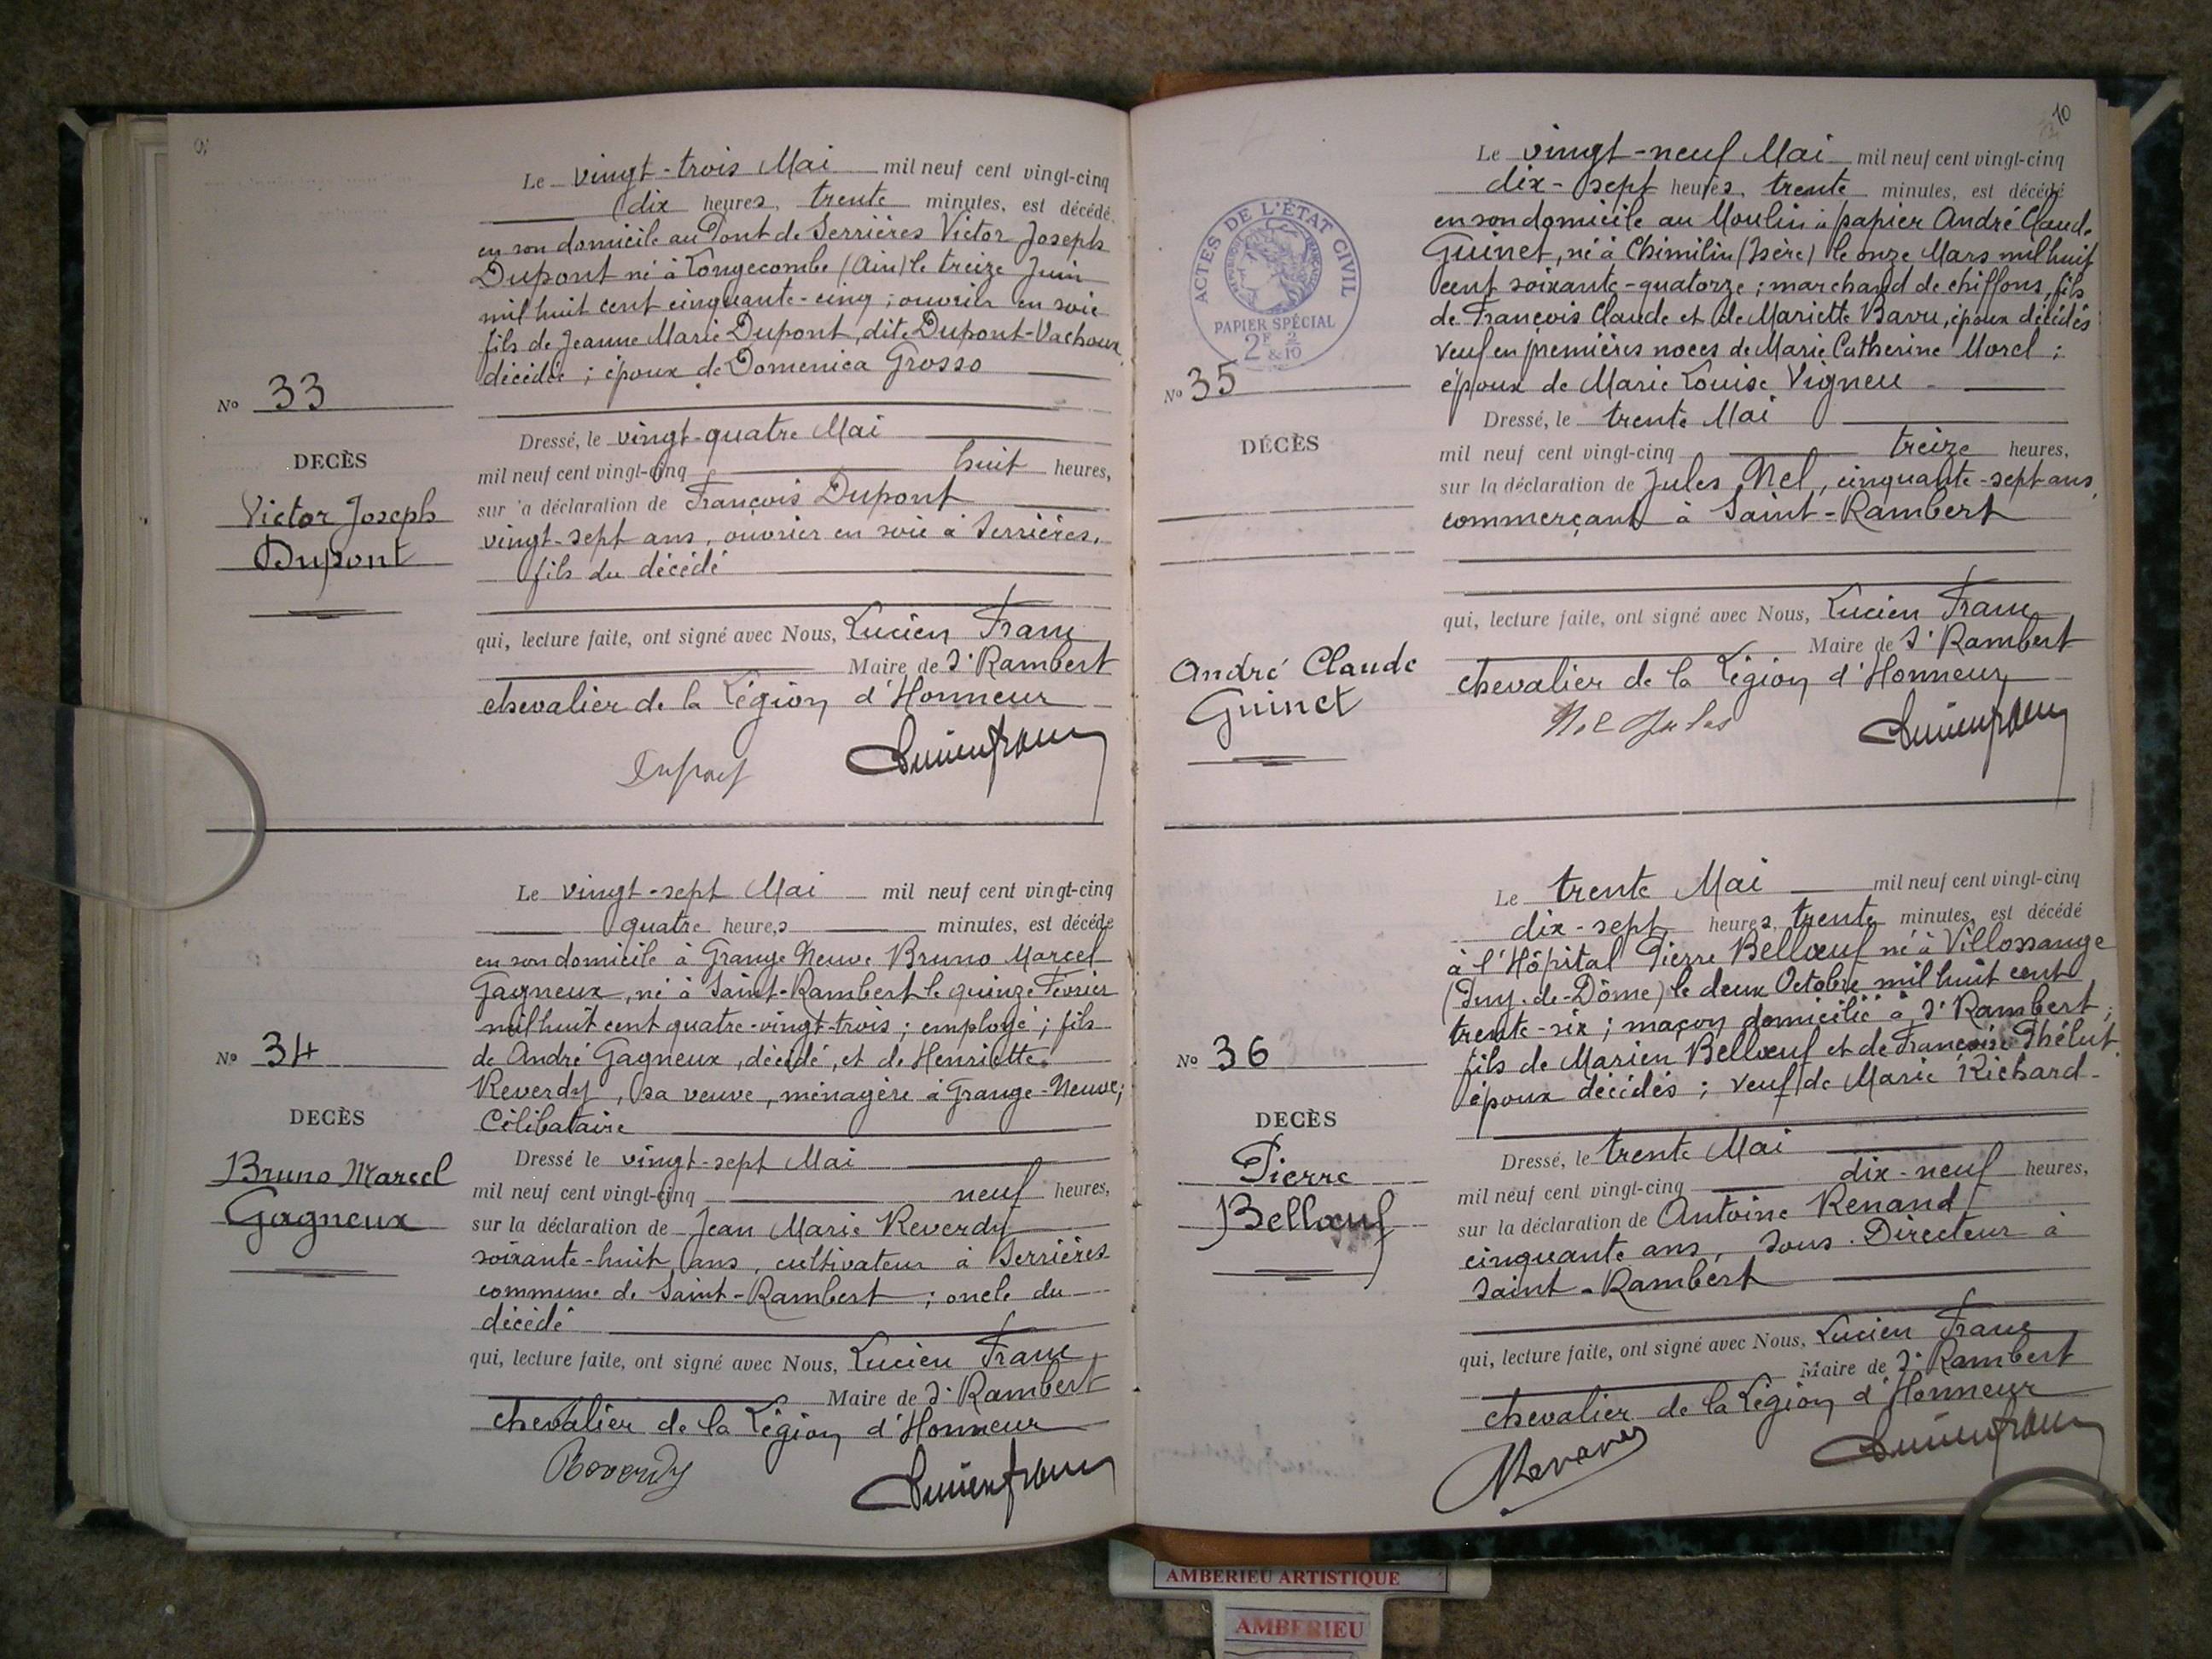 Le vingt-trois Mai mil neuf cent vingt-cinq
dix heures, trente minutes, est décédé
en son domicile au Pont de Serrières Victor Joseph
Dupont né à Longecombe (Ain) le treize Juin
mil huit cent cinquante-cinq ; ouvrier en soie
fils de Jeanne Marie Dupont, dite Dupont-Vachoux
décédée ; époux de Domenica Grosso
No 33
Dressé, le vingt-quatre Mai
DECÈS
mil neuf cent vingt-cinq huit heures,
Victor Joseph
Dupont
sur la déclaration de François Dupont
vingt-sept ans, ouvrier en soie à Serrières,
fils du décédé
qui, lecture faite, ont signé avec Nous, Lucien Franc
Maire de St Rambert
chevalier de la Légion d'Honneur
Dupont
Lucien Franc
Le vingt-sept Mai mil neuf cent vingt-cinq
quatre heures minutes, est décédé
en son domicile à Grange Neuve Bruno Marcel
Gagneux, né à Saint-Rambert le quinze Février
mil huit cent quatre-vingt-trois ; employé ; fils
No 34
de André Gagneux, décédé, et de Henriette
Reverdy, sa veuve, ménagère à Grange-Neuve;
Célibataire
DECÈS
Bruno Marcel
Gagneux
Dressé le vingt-sept Mai
mil neuf cent vingt-cinq neuf heures,
sur la déclaration de Jean Marie Reverdy
soixante-huit ans, cultivateur à Serrières
commune de Saint-Rambert ; oncle du
décédé
qui, lecture faite, ont signé avec Nous, Lucien Franc
Maire de St Rambert
chevalier de la Légion d'Honneur
Reverdy
Lucien Franc
10
ACTES DE L'ÉTAT CIVIL
PAPIER SPÉCIAL
2F 2
&10
Le vingt-neuf Mai mil neuf cent vingt-cinq
dix-sept heures, trente minutes, est décédé
en son domicile au Moulin à papier André Claude
Guinet, né à Chimilin (Isère) le onze Mars mil huit
cent soixante-quatorze ; marchand de chiffons, fils
de François Claude et de Mariette Bavu, époux décédés
veuf en premières noces de Marie Catherine Morel ;
No 35
époux de Marie Louise Vigneu
Dressé, le trente Mai
DÉCÈS
mil neuf cent vingt-cinq treize heures,
sur la déclaration de Jules Nel, cinquante-sept ans,
commerçant à Saint-Rambert
qui, lecture faite, ont signé avec Nous, Lucien Franc
Maire de St Rambert
André Claude
Guinet
chevalier de la Légion d'Honneur
Nel Jules
Lucien Franc
Le trente Mai mil neuf cent vingt-cinq
dix-sept heures, trente minutes, est décédé
à l'Hôpital Pierre Bellœuf né à Villossange
(Puy-de-Dôme) le deux Octobre mil huit cent
trente-six ; maçon domicilié à St Rambert ;
No 36
fils de Marien Bellœuf et de Françoise Thélut
époux décédés ; veuf de Marie Richard
DECÈS
Pierre
Bellœuf
Dressé, le trente Mai
mil neuf cent vingt-cinq dix-neuf heures,
sur la déclaration de Antoine Renand
cinquante ans, Sous-Directeur à
Saint-Rambert
qui, lecture faite, ont signé avec Nous, Lucien Franc
Maire de St Rambert
chevalier de la Légion d'Honneur
Lucien Franc
AMBERIEU ARTISTIQUE
AMBERIEU